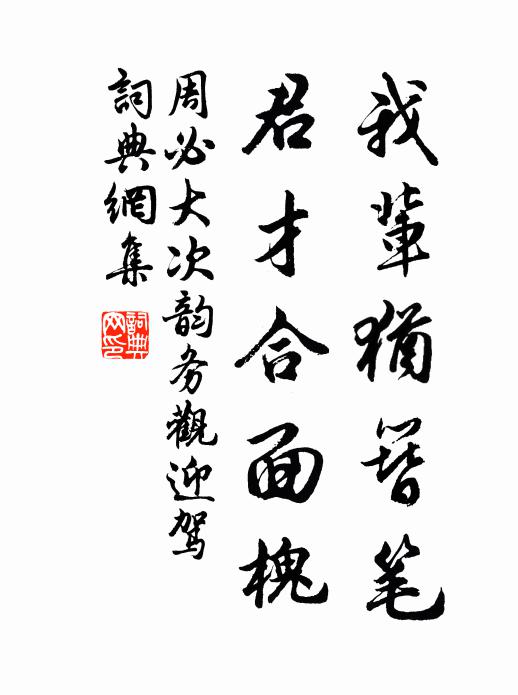 我輩猶簪笔
君才合面槐
周必大次韵务觀迎駕
詞典網集
詞典网印